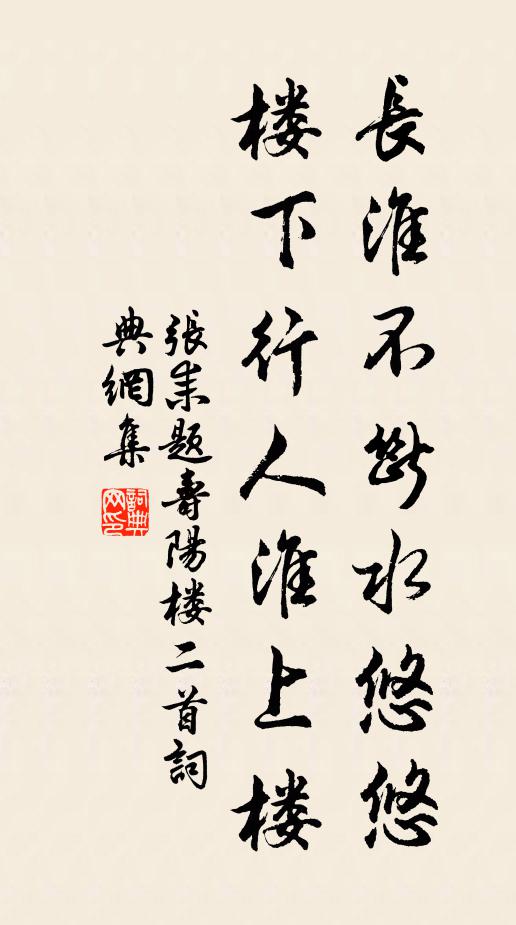 長淮不斷水悠悠
楼下行人淮上楼
張耒題壽陽楼二首詞
典網集
詞典網印